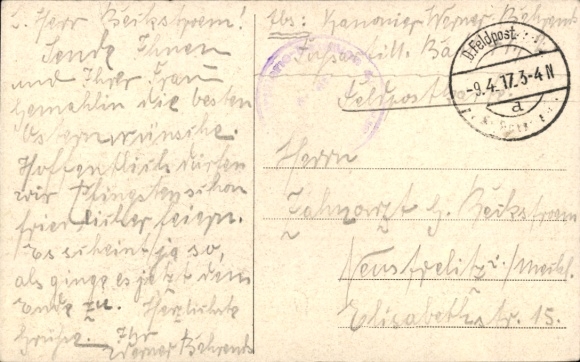 L. Herr Beckstroem!
Sende Ihnen
und Ihrer Frau
Gemahlin die besten
Osternwünsche.
Hoffentlich dürfen
wir Pfingsten schon
friedlicher feiern.
Es scheint ja so,
als ginge es jetzt dem
Ende zu. Herzlichste
Grüße. Ihr
Werner Behrends
Abs: Kanonier Werner Behrends
Fussartill. Ba
Feldpost
D. Feldpost
-9.4.17. 3-4 N
a
Herrn
Zahnarzt H. Beckstroem
Neustrelitz i/Meckl.
Elisabethstr. 15.